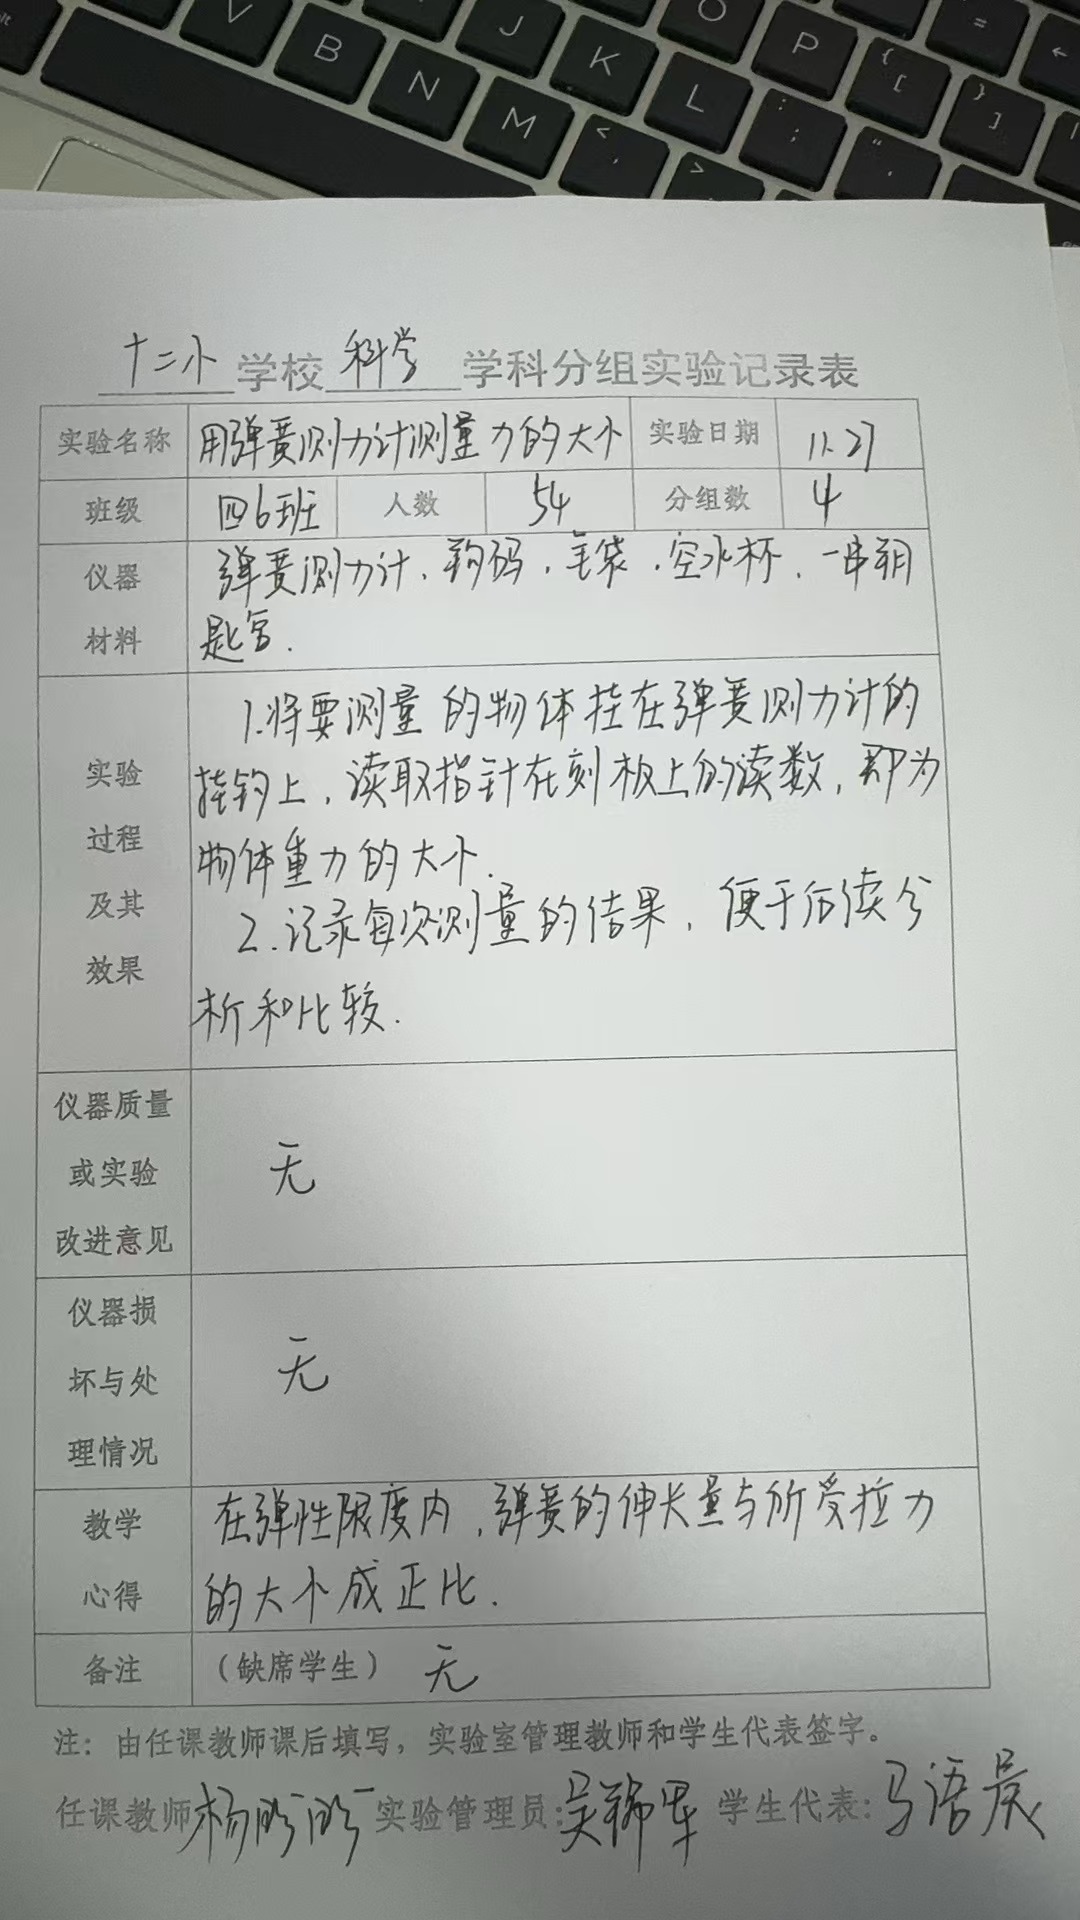 V B N M J K L O P
< , > : ; " ' { [ } ] = ←
十二小学校科学学科分组实验记录表
实验名称 用弹簧测力计测量力的大小 实验日期 11.27
班级 四6班 人数 54 分组数 4
仪器 弹簧测力计、钩码、笔袋、空水杯、一串钥
材料 匙等.
1.将要测量的物体挂在弹簧测力计的
实验 挂钩上,读取指针在刻板上的读数,即为
过程
及其 物体重力的大小.
2.记录每次测量的结果,便于后续分
效果 析和比较.
仪器质量
或实验 无
改进意见
仪器损
坏与处 无
理情况
教学 在弹性限度内,弹簧的伸长量与所受拉力
心得 的大小成正比.
备注 (缺席学生) 无
注:由任课教师课后填写,实验室管理教师和学生代表签字。
任课教师 杨 实验管理员:吴 军 学生代表:马语晨